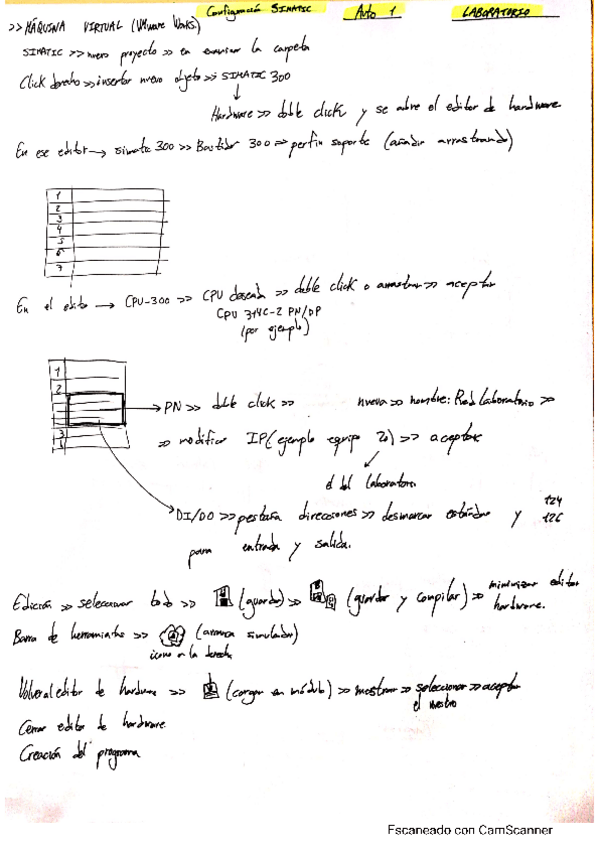 Configuración SIMATIC Auto 1 LABORATORIO
>> MÁQUINA VIRTUAL (VMware Works)
SIMATIC >> nuevo proyecto >> en examinar la carpeta
Click derecho >> insertar nuevo objeto >> SIMATIC 300
Hardware >> doble click y se abre el editor de hardware
En ese editor → simatic 300 >> Bastidor 300 >> perfin soporte (añadir arrastrando)
1
2
3
4
5
6
7
En el editor → CPU-300 >> CPU deseada >> doble click o arrastrar >> aceptar
CPU 314C-2 PN/DP
(por ejemplo)
1
2
PN >> doble click >> nueva >> nombre: Red Laboratorio >>
3
>> modificar IP (ejemplo equipo 20) >> aceptar
el del laboratorio
DI/DO >> pestaña direcciones >> desmarcar estándar y 124
126
para entrada y salida.
Edición >> seleccionar todo >> (guardar) >> (guardar y compilar) >> minimizar editor
hardware.
Barra de herramientas >> (arranca simulador)
icono a la derecha
Volver al editor de hardware >> (cargar en módulo) >> mostrar >> seleccionar >> aceptar
el nuestro
Cerrar editor de hardware.
Creación del programa
Escaneado con CamScanner